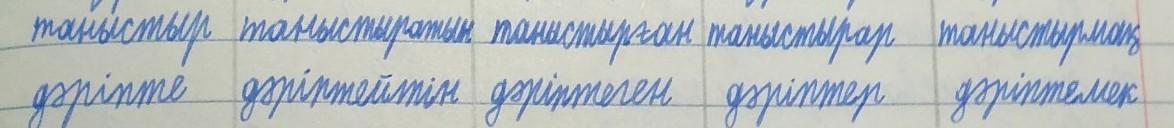 таныстыр таныстыратын таныстырған таныстырар таныстырмақ
дәріпте дәріптейтін дәріптеген дәріптер дәріптемек